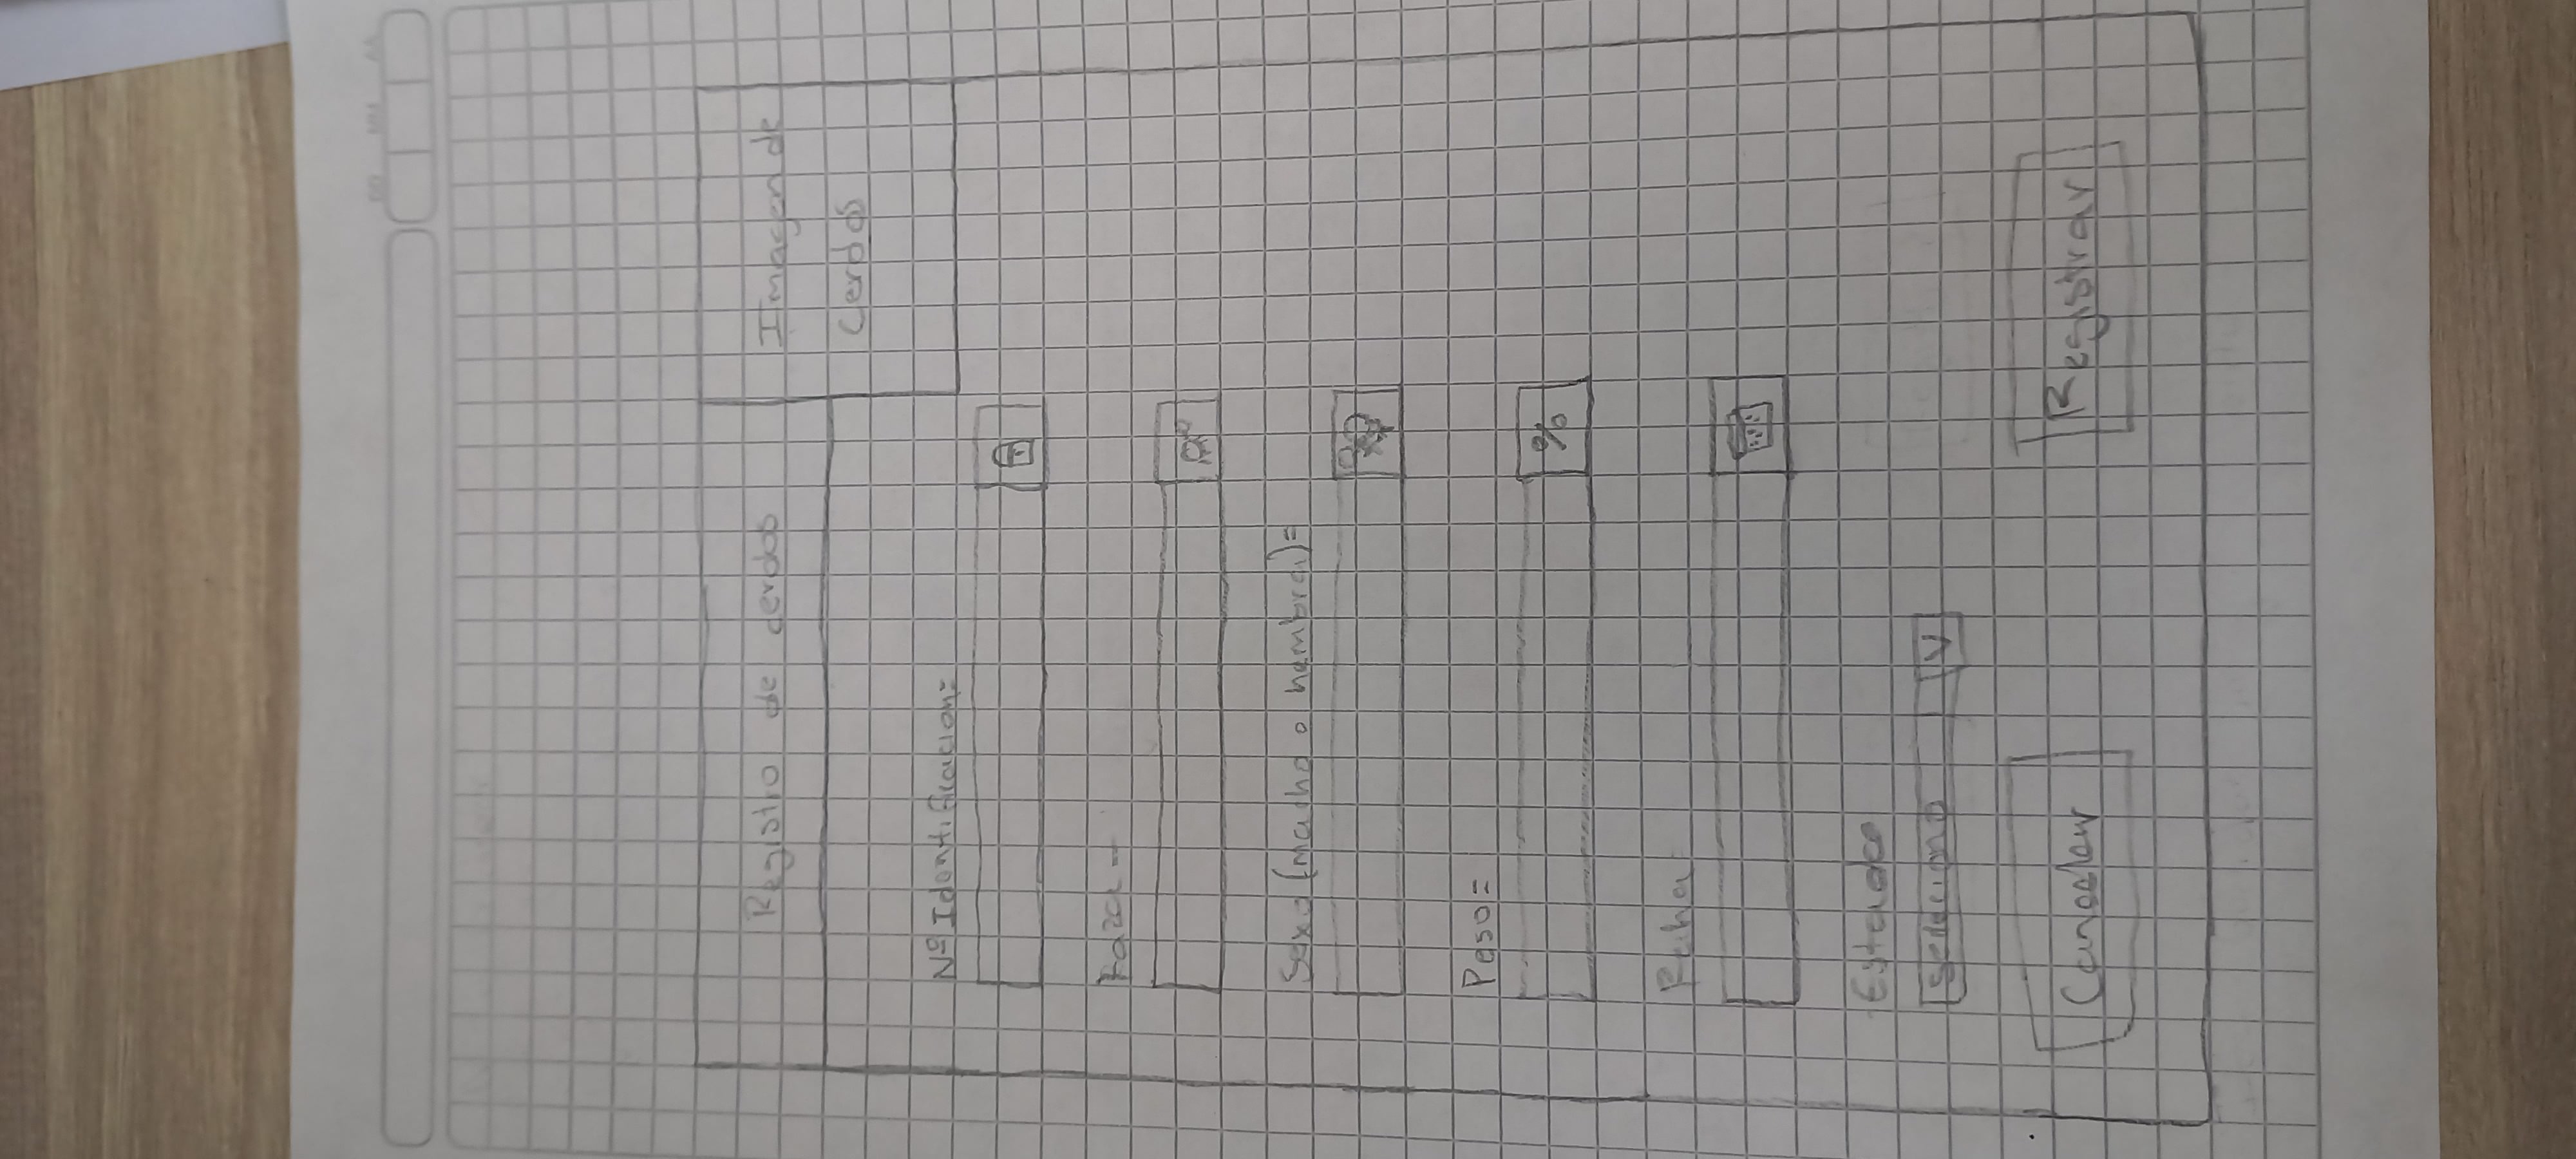 Registro de cerdos
Imagen de
Cerdos
Nº Identificacion=
Raza =
Sexo (macho o hembra)=
Peso=
%
Fecha
Estado
V
Cancelar
Registrar